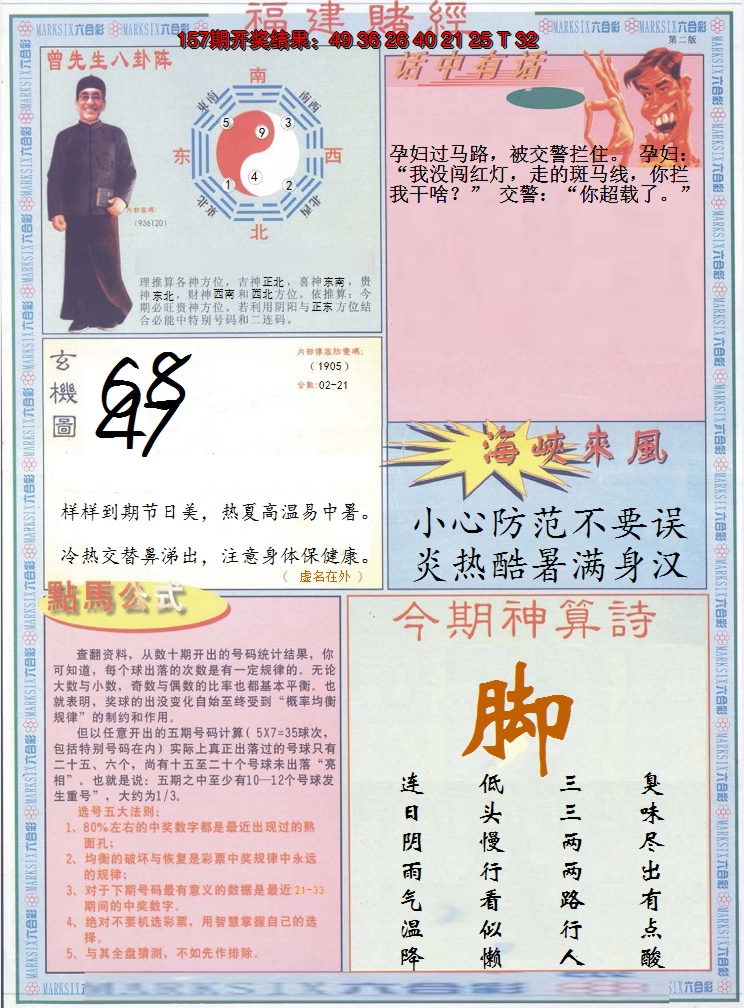 福建賭經
157期开奖结果：49 36 26 40 21 25 T 32
第二版
曾先生八卦阵
南
东南
南西
5
9
3
东
西
1
4
2
東北
西北
北
(936120)
理推算各神方位，吉神正北，喜神东南，贵
神东北，财神西南和西北方位。依推算：今
期必旺贵神方位。若利用阴阳与正东方位结
合必能中特别号码和二连码。
话中有话
孕妇过马路，被交警拦住。 孕妇：
“我没闯红灯，走的斑马线，你拦
我干啥？” 交警：“你超载了。”
玄機圖
68
47
(1905)
合数:02-21
样样到期节日美，热夏高温易中暑。
冷热交替鼻涕出，注意身体保健康。
（ 虚名在外 ）
海峡來風
小心防范不要误
炎热酷暑满身汉
點馬公式
查翻资料，从数十期开出的号码统计结果，你
可知道，每个球出落的次数是有一定规律的。无论
大数与小数，奇数与偶数的比率也都基本平衡。也
就表明，奖球的出没变化自始至终受到“概率均衡
规律”的制约和作用。
但以任意开出的五期号码计算( 5X7=35球次，
包括特别号码在内) 实际上真正出落过的号球只有
二十五、六个，尚有十五至二十个号球未出落“亮
相”。也就是说：五期之中至少有10—12个号球发
生重号”，大约为1/3。
选号五大法则:
1、80%左右的中奖数字都是最近出现过的熟
面孔；
2、均衡的破坏与恢复是彩票中奖规律中永远
的规律;
3、对于下期号码最有意义的数据是最近21-33
期间的中奖数字。
4、绝对不要机选彩票，用智慧掌握自己的选
择。
5、与其全盘猜测，不如先作排除。
今期神算詩
脚
臭味尽出有点酸
三三两两路行人
低头慢行看似懒
连日阴雨气温降
MARKSIX六合彩